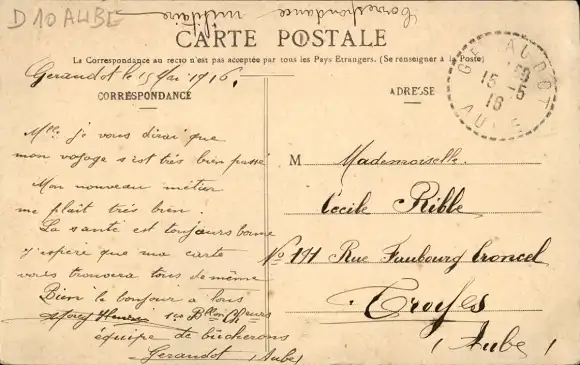 D 10 AUBE
Correspondance militaire
CARTE POSTALE
La Correspondance au recto n'est pas acceptée par tous les Pays Étrangers. (Se renseigner à la Poste)
Gérandot le 15 Mai 1916
CORRESPONDANCE
Mlle je vous dirai que
mon voyage s'est très bien passé
Mon nouveau métier
me plaît très bien.
La santé est toujours bonne
j'espère que ma carte
vous trouvera tous de même
Bien le bonjour à tous
Henri 1er Bllon Cheurs
équipe de bûcherons
Gerandot (Aube)
ADRESSE
M Mademoiselle
Cécile Rible
No 141 Rue Faubourg Croncel
Troyes
(Aube)
GERAUDOT
15 -5
16
AUBE